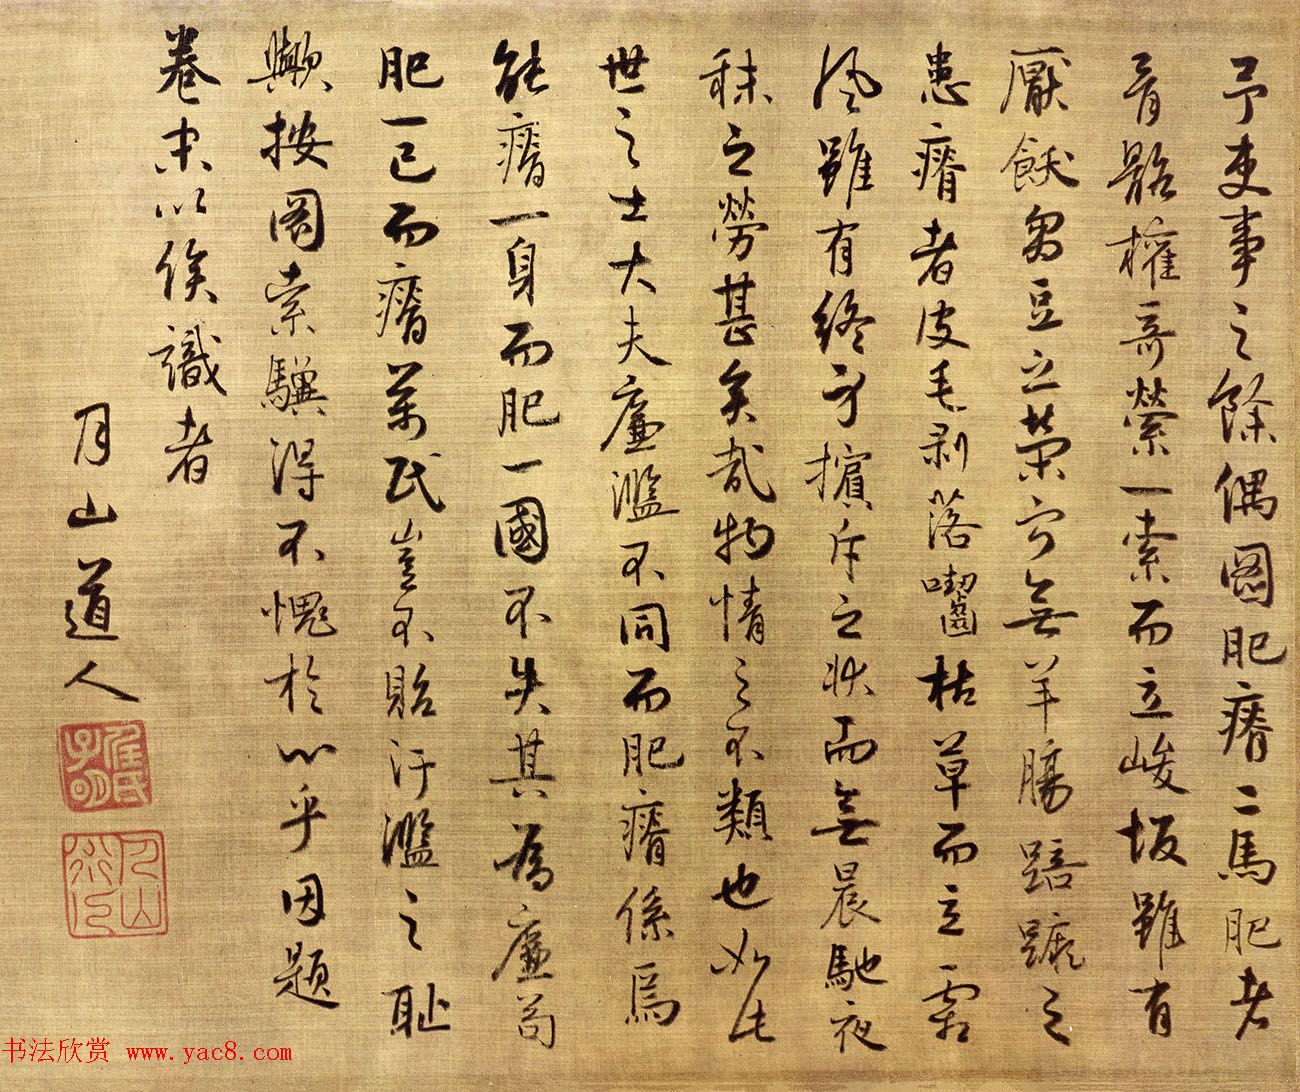 予吏事之餘偶圖肥瘠二馬肥者
骨骼權奇縈一索而立峻坂雖有
厭飫芻豆之榮寧無羊腸踣蹶之
患瘠者皮毛剥落囓枯草而立霜
風雖有終身擯斥之狀而無晨馳夜
秣之勞甚矣哉物情之不類也如此
世之士大夫廉濫不同而肥瘠係焉
能瘠一身而肥一國不失其為廉苟
肥一己而瘠萬民豈不貽汙濫之恥
歟按圖索驥得不愧於心乎因題
卷末以俟識者
月山道人
任氏子明
月山道人
书法欣赏 www.yac8.com